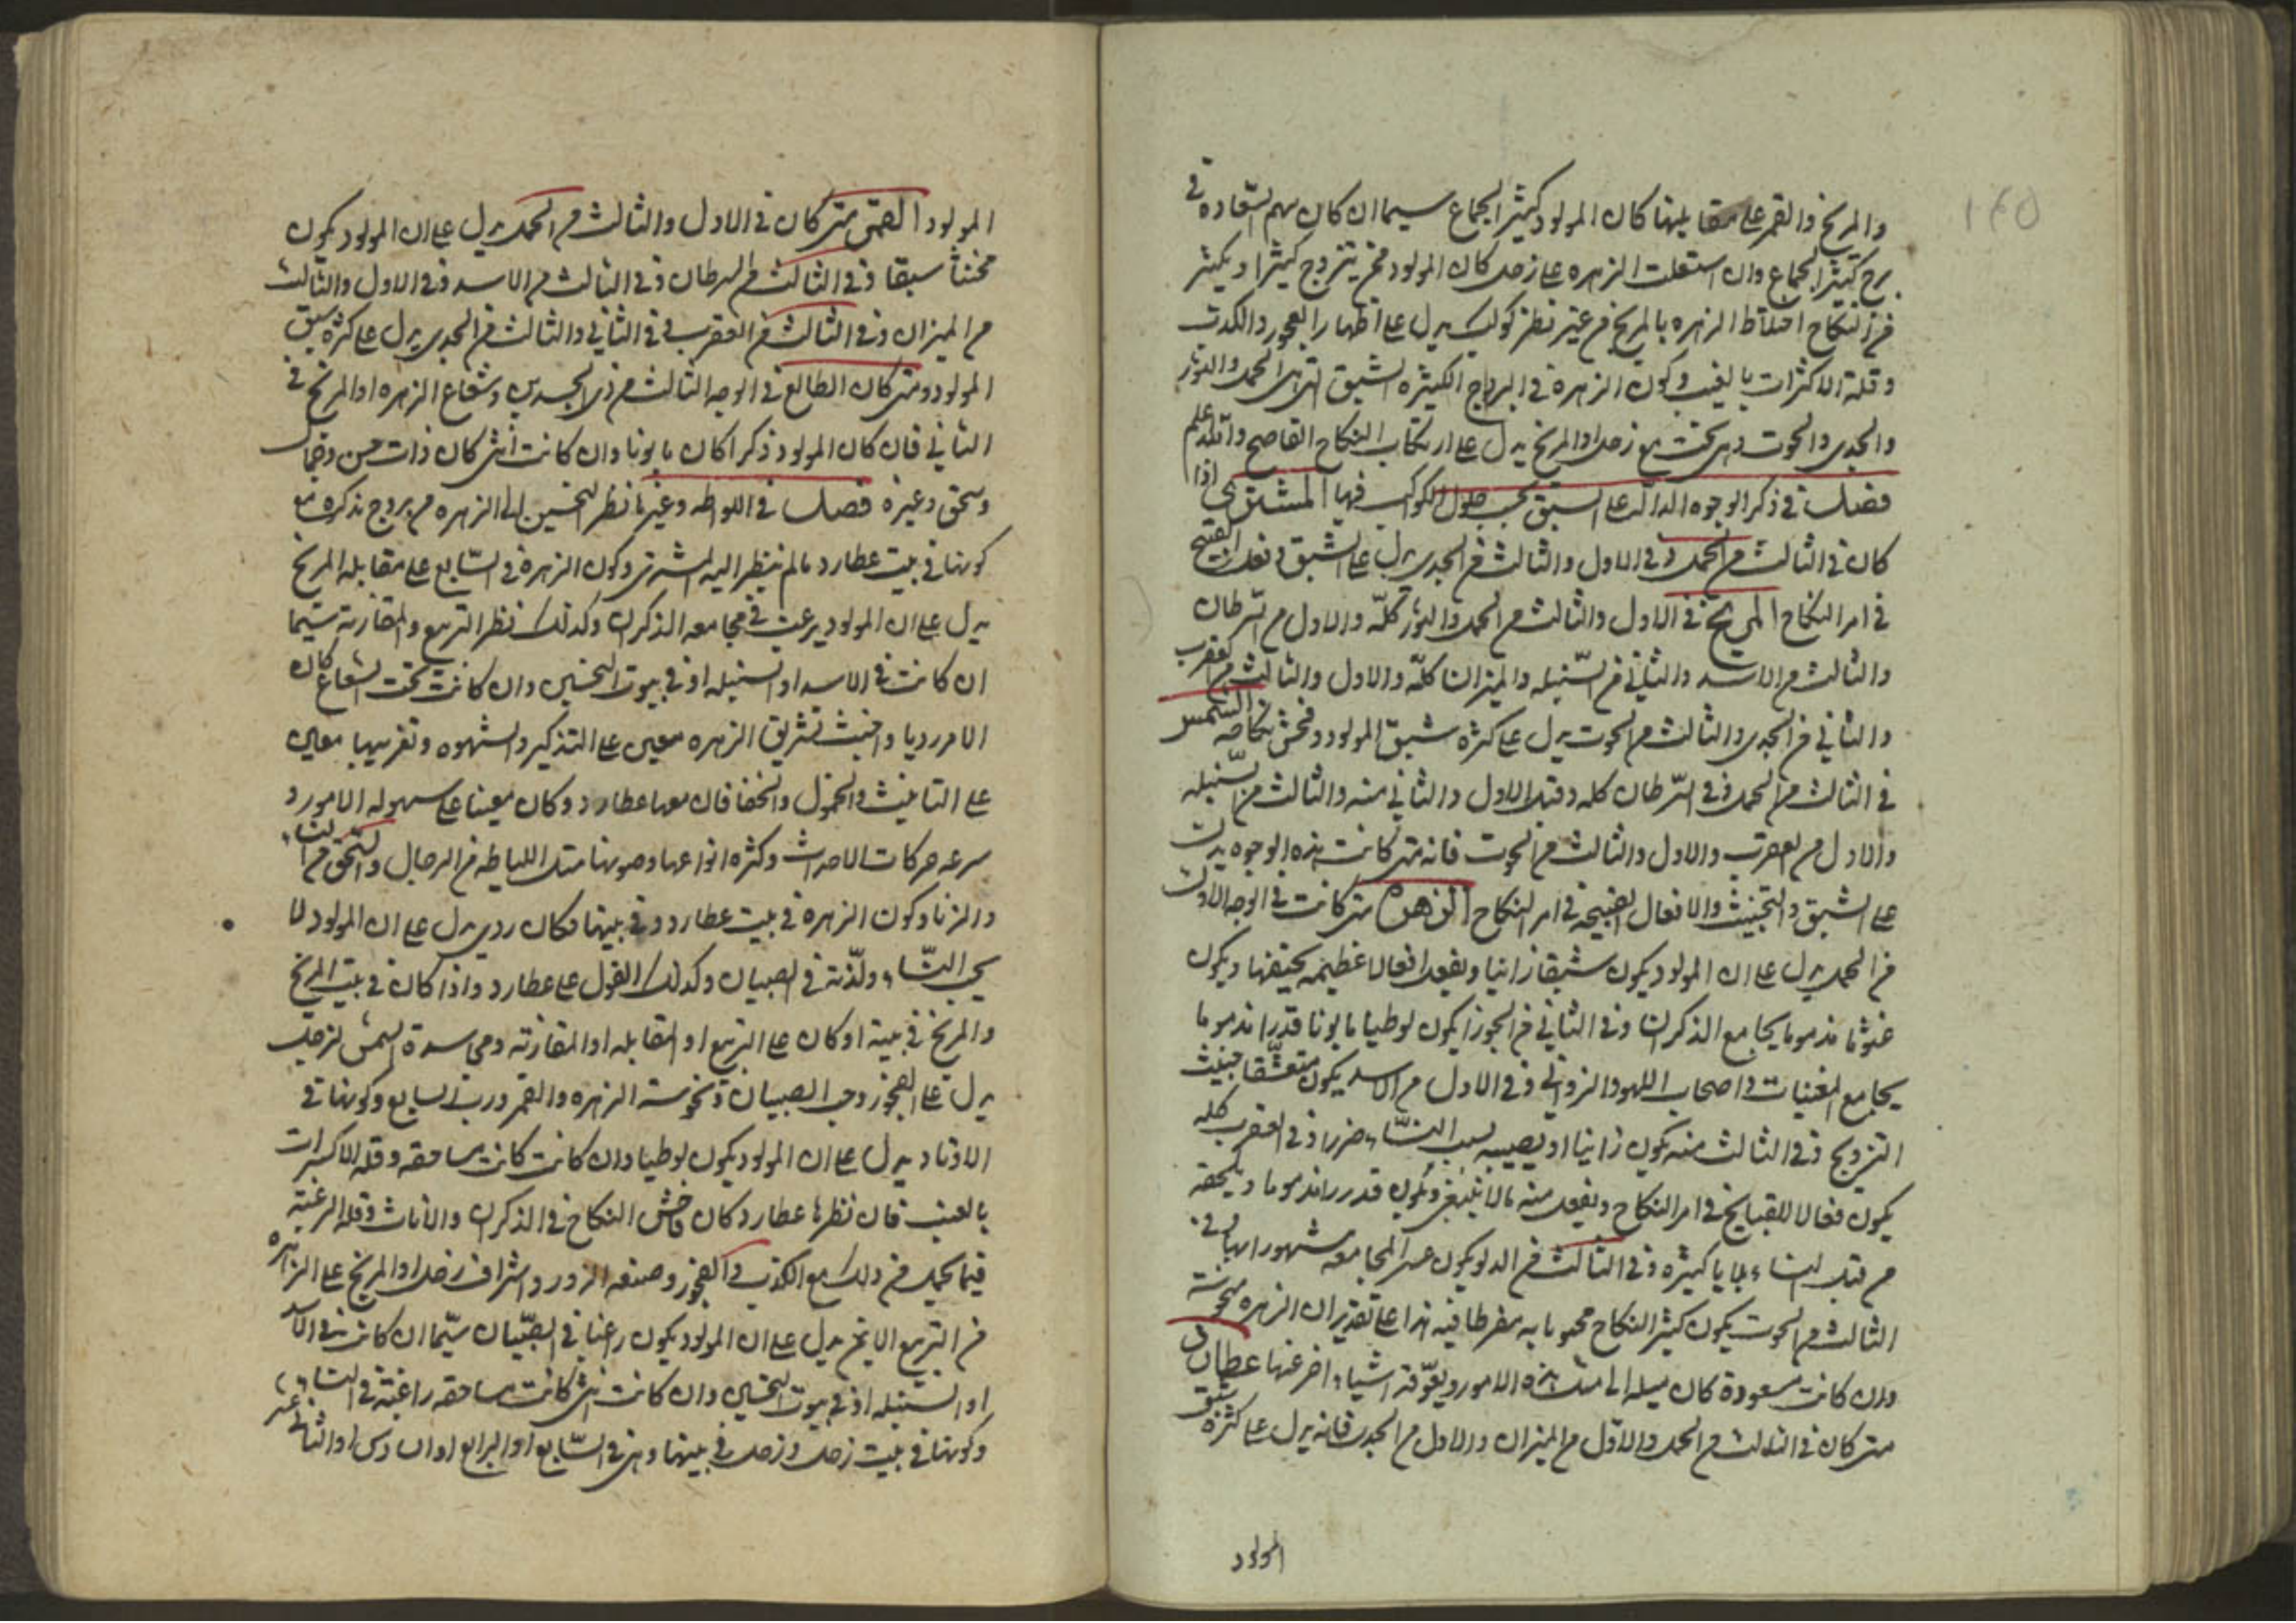 ١٢٥
والمريخ والقمر على مقابلتها كان المولود كثير الجماع سيما ان كان سهم السّعاده في
برج كثير الجماع وان استعلت الزهره على زحل كان المولود ممن يتزوج كثيرا ويكثر
من النكاح اختلاط الزهره بالمريخ من غير نظر كوكب يدل على اظهار الفجور والكدت
وقلة الاكثرات بالغيب وكون الزهرة في البروج الكثيره الشبق التي هي الحمل والثور
والجدى والحوت وهي تحت مع زحل او المريخ يدل على ارتكاب النكاح الفاضح والله اعلم
فصل في ذكر الوجوه الدالّه على السبق بحسب حلول الكواكب فيها المشترى اذا
كان في الثالث من الحمل وفي الاول والثالث من الجدى يدل على الشبق وفعل القبيح
في امر النكاح المريخ في الاول والثالث من الحمل والثور كلّه والاول من السّرطان
والثالث من الاسد والثاني من السّنبله والميزان كلّه والاول والثالث من العقرب
والثاني من الجدى والثالث من الحوت يدل على كثرة شبق المولود وفحش نكاحه الشمس
في الثالث من الحمل وفي السّرطان كله وقبل الاول والثاني منه والثالث من السّنبله
والاول من العقرب والاول والثالث من الحوت فانه متى كانت بهذه الوجوه يدل
على الشبق والتخنيث والافعال القبيحه في امر النكاح الزهره متى كانت في الوجه الاول
من الحمل يدل على ان المولود يكون شبقا زانيا ويفعل افعالا عظيمه يحيفها ويكون
خنوثا مذموما يجامع الذكران وفي الثاني من الجوزا يكون لوطيا مابونا قدرا مذموما
يجامع المغنيات واصحاب اللهو والزواني وفي الاول من الاسد يكون متعشّقا خبيث
التزويج وفي الثالث منه يكون زانيا او يصيبه بسبب النسّاء ضرر وفي العقرب كله
يكون فعالا للقبايح في امر النكاح ويفعل منه مالا ينبغي ويكون قدرا مذموما ويلحقه
من قبل النساء بلايا كثيره وفي الثالث من الدلو يكون عسر المجامعه مشهورا بها في
الثالث من الحوت يكون كثير النكاح محبوبا به مفرطا فيه هذا على تقدير ان الزهره منحوسة
وان كانت مسعودة كان ميله الى مثل هذه الامور ويعوّقه اشياء اخر عنها عطارد
متى كان في الثالث من الحمل والاوّل من الميزان والاول من الجدى فانه يدل على كثرة شبق
المولود
المولود القمر متى كان في الاول والثالث من الحمل يدل على ان المولود يكون
مخنثا سبقا وفي الثالث من السرطان وفي الثالث من الاسد وفي الاول والثالث
من الميزان وفي الثالث من العقرب في الثاني والثالث من الجدى يدل على كثرة شبق
المولود ومتى كان الطالع في الوجه الثالث من ذي الجسدين وشعاع الزهره او المريخ في
الثاني فان كان المولود ذكرا كان مابونا وان كانت أنثى كان ذات حسن وجمال
وسحق وغيره فصل في اللواطه وغيرها نظر النحسين الى الزهره من بروج مذكره مع
كونها في بيت عطارد مالم ينظر اليه المشترى وكون الزهره في السّابع على مقابله المريخ
يدل على ان المولود يرغب في مجامعه الذكران وكذلك نظر التربيع والمقارنة سيّما
ان كانت في الاسد او السنبله او في بيوت النحسين وان كانت تحت الشعاع كان
الامر رديا واخبث تشريق الزهره معين على التذكير والشهوه وتغريبها معين
على التانيث والخمول والخفا فان معها عطارد وكان معينا على سهوله الامور و
سرعه حركات الاحداث وكثره انواعها وصوبها مثل اللياطه من الرجال والسّحق من النساء
والزنا وكون الزهرة في بيت عطارد وفي بيتها مكان ردي يدل على ان المولود لا
يحب النسّاء ولذّته في الصبيان وكذلك القول على عطارد واذا كان في بيت المريخ
والمريخ في بيته او كان على التربيع او المقابله او المقارنه ومحاسدة الشمس لزحل
يدل على الفجور وحب الصبيان ونحوسة الزهره والقمر ورب السابع وكونها في
الاوتاد يدل على ان المولود يكون لوطيا وان كانت كانت مساحقه وقله الاكترات
بالعيب فان نظرها عطارد كان فاحش النكاح في الذكران والاناث وقله الرغبة
فيما يحمل من ذلك مع الكذب والفجور وصنعه الزور واشراف زحل او المريخ على الزهره
من التربيع الايمن يدل على ان المولود يكون راغبا في الصّبيان سيّما ان كانت في الاسد
او السنبله او في بيوت النحسين وان كانت انثى كانت مساحقه راغبة في النساء
وكونها في بيت زحل وزحل في بيتها وهي في السّابع او الرابع او السادس او الثاني عشر